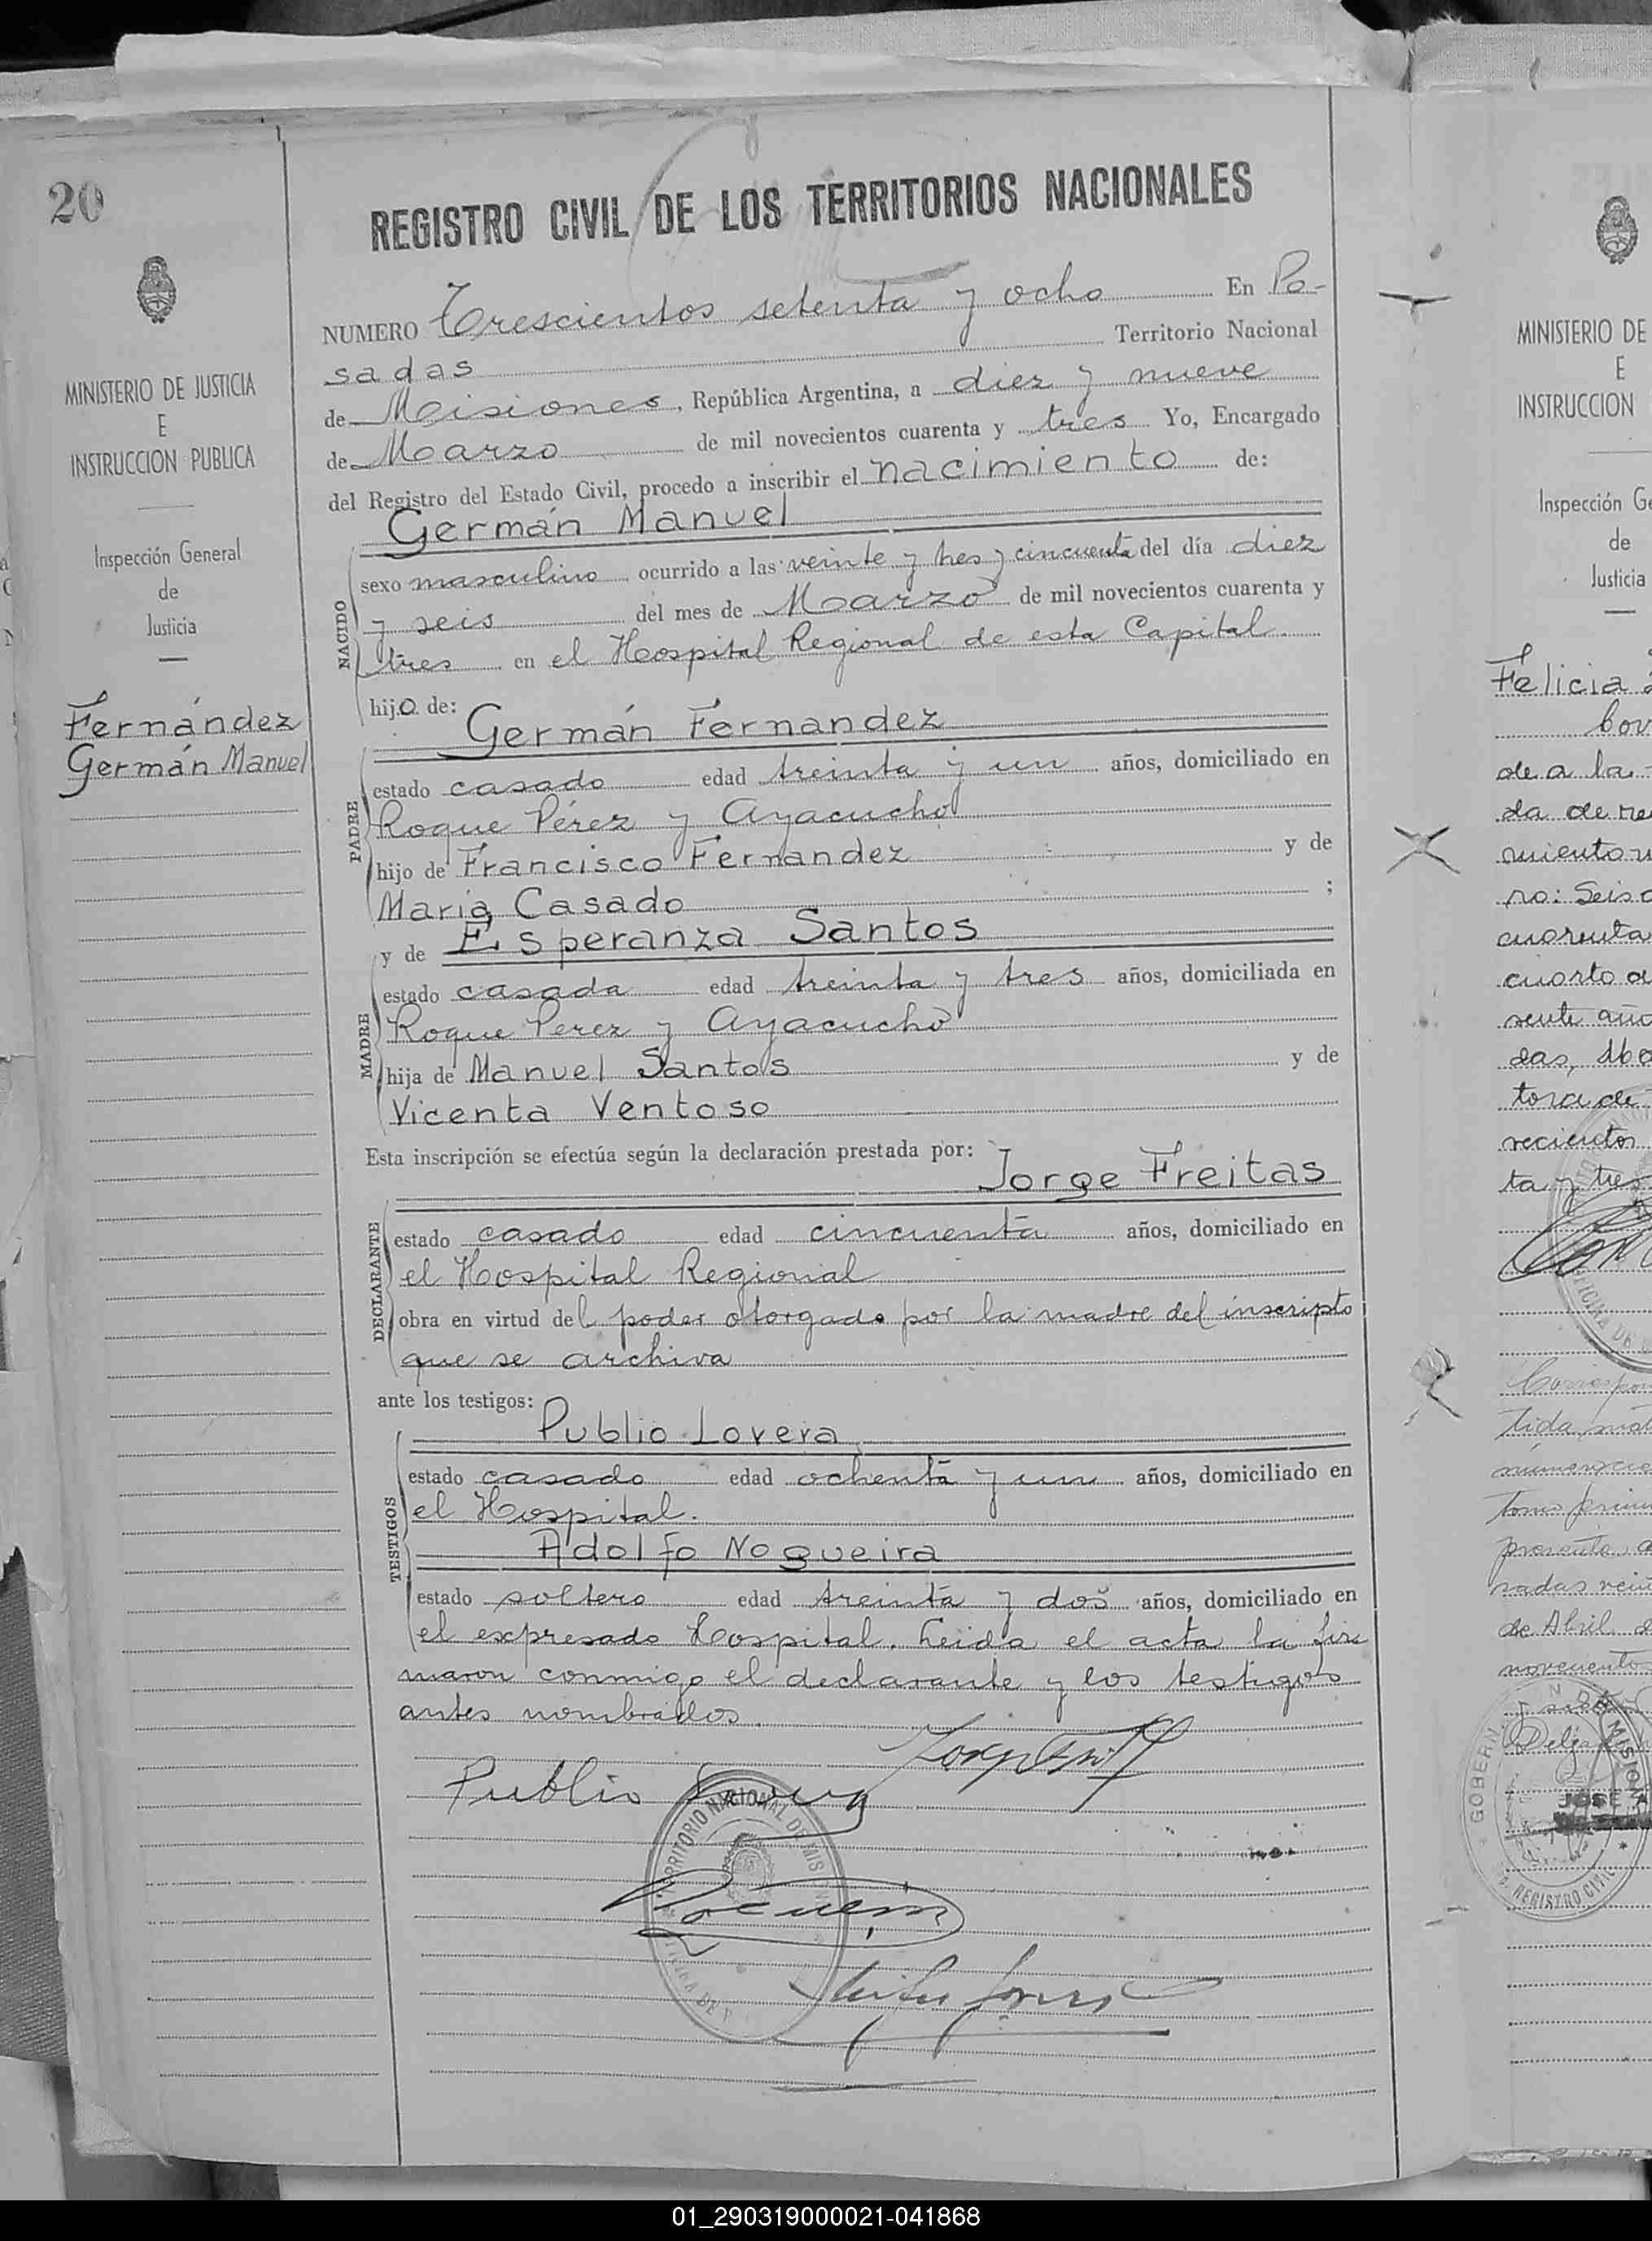 20
MINISTERIO DE JUSTICIA
E
INSTRUCCION PUBLICA
Inspección General
de
Justicia
Fernández
Germán Manuel
REGISTRO CIVIL DE LOS TERRITORIOS NACIONALES
NUMERO Trescientos setenta y ocho En Po-
sadas Territorio Nacional
de Misiones, República Argentina, a diez y nueve
de Marzo de mil novecientos cuarenta y tres Yo, Encargado
del Registro del Estado Civil, procedo a inscribir el nacimiento de:
Germán Manuel
NACIDO
sexo masculino ocurrido a las veinte y tres y cincuenta del día diez
y seis del mes de Marzo de mil novecientos cuarenta y
tres en el Hospital Regional de esta Capital.
hijo de: Germán Fernandez
PADRE
estado casado edad treinta y un años, domiciliado en
Roque Pérez y Ayacucho
hijo de Francisco Fernandez y de
María Casado ;
y de Esperanza Santos
MADRE
estado casada edad treinta y tres años, domiciliada en
Roque Perez y Ayacucho
hija de Manuel Santos y de
Vicenta Ventoso
Esta inscripción se efectúa según la declaración prestada por:
Jorge Freitas
DECLARANTE
estado casado edad cincuenta años, domiciliado en
el Hospital Regional
obra en virtud del poder otorgado por la madre del inscripto
que se archiva
ante los testigos:
Publio Lovera
TESTIGOS
estado casado edad ochenta y un años, domiciliado en
el Hospital.
Adolfo Nogueira
estado soltero edad treinta y dos años, domiciliado en
el expresado Hospital. Leída el acta la fir
maron conmigo el declarante y los testigos
antes nombrados.
Publio
TERRITORIO NACIONAL DE MIS
MINISTERIO DE
E
INSTRUCCION
Inspección Ge
de
Justicia
Felicia
de a la
da de
miento
ro: Seis
cuarenta
cuarto
sente
das,
tora de
ta y tres
tida
Tomo
presente
de Abril
novecientos
GOBERN N DE MISION
JOSE
REGISTRO CIVIL
01_290319000021-041868